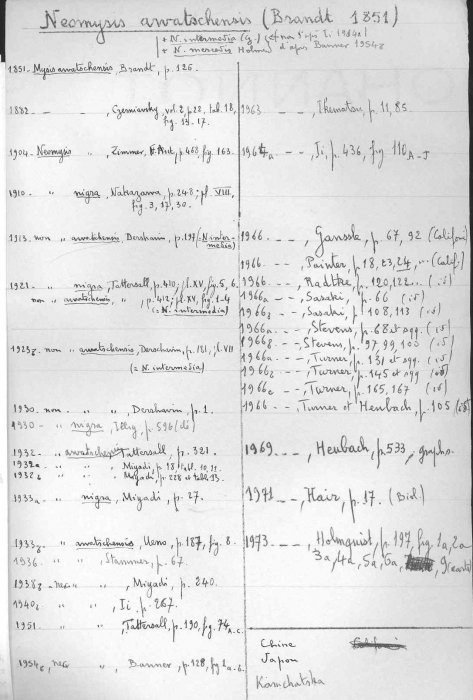 Neomysis awatschensis (Brandt 1851)
+ N. intermedia (Cz.) (et non I. 1964a)
+ N. mercedis Holmes d'après Banner 1954g
1851. Mysis awatschensis, Brandt, p. 126.
1882 — —, Czerniavsky, vol. 2, p. 22, tab. 18,
fig. 13-17.
1904. Neomysis ", Zimmer, p. 468, fig. 163.
1910. — " nigra, Nakazawa, p. 248; pl. VIII,
fig. 3, 17, 30.
1913. non " awatschensis, Derzhavin, p. 197 (= N. intermedia)
1921. " nigra, Tattersall, p. 410; pl. XV, fig. 5, 6.
non " awatschensis, ", p. 412; pl. XV, fig. 1-4
(= N. intermedia)
1923g. non " awatschensis, Derzhavin, p. 181, pl. VII
(= N. intermedia)
1930. non " ", Derzhavin, p. 1.
1930 — " nigra, Illig, p. 596 (id)
1932 — " awatschensis Tattersall, p. 321.
1932a — " " Miyadi, p. 18 tabl. 10, 11.
1932b " " Miyadi, p. 228 et tabl 13.
1933a — " nigra, Miyadi, p. 27.
1933g " awatschensis, Ueno, p. 187, fig. 8.
1936 " " ", Stammer, p. 67.
1938g - nec " ", Miyadi, p. 240.
1940g " " ", Ii, p. 267.
1951 " " ", Tattersall, p. 190, fig. 74 A-C.
1954g, nec " ", Banner, p. 128, fig 2a-b.
1963 — — —, Ikematsu, p. 11, 85.
1964a — — —, Ii, p. 436, fig 110 A-J
1966 — — —, Ganssle, p. 67, 92 (Californi)
1966 — — —, Painter, p. 18, 23, 24, ... (Calif.)
1966 — — —, Radtke, p. 120, 122... (id)
1966a — — —, Sasaki, p. 66 (id)
1966g — — —, Sasaki, p 108, 113 (id)
1966a — — —, Stevens, p. 68 et sqq. (id)
1966g — — —, Stevens, p. 97, 99, 100 (id)
1966a — — —, Turner, p. 131 et sqq. (id)
1966g — — —, Turner, p. 145 et sqq (id)
1966c — — —, Turner, p. 165, 167 (id)
1966 — — —, Turner et Heubach, p. 105 (id)
1969 — — —, Heubach, p. 533, graphs.
1971 — — —, Hair, p. 17. (Biol)
1973 — — —, Holmquist, p. 197, fig. 1a, 2a
3a, 4a, 5a, 6a, 9 (carte)
Chine
Japon
Kamchatska